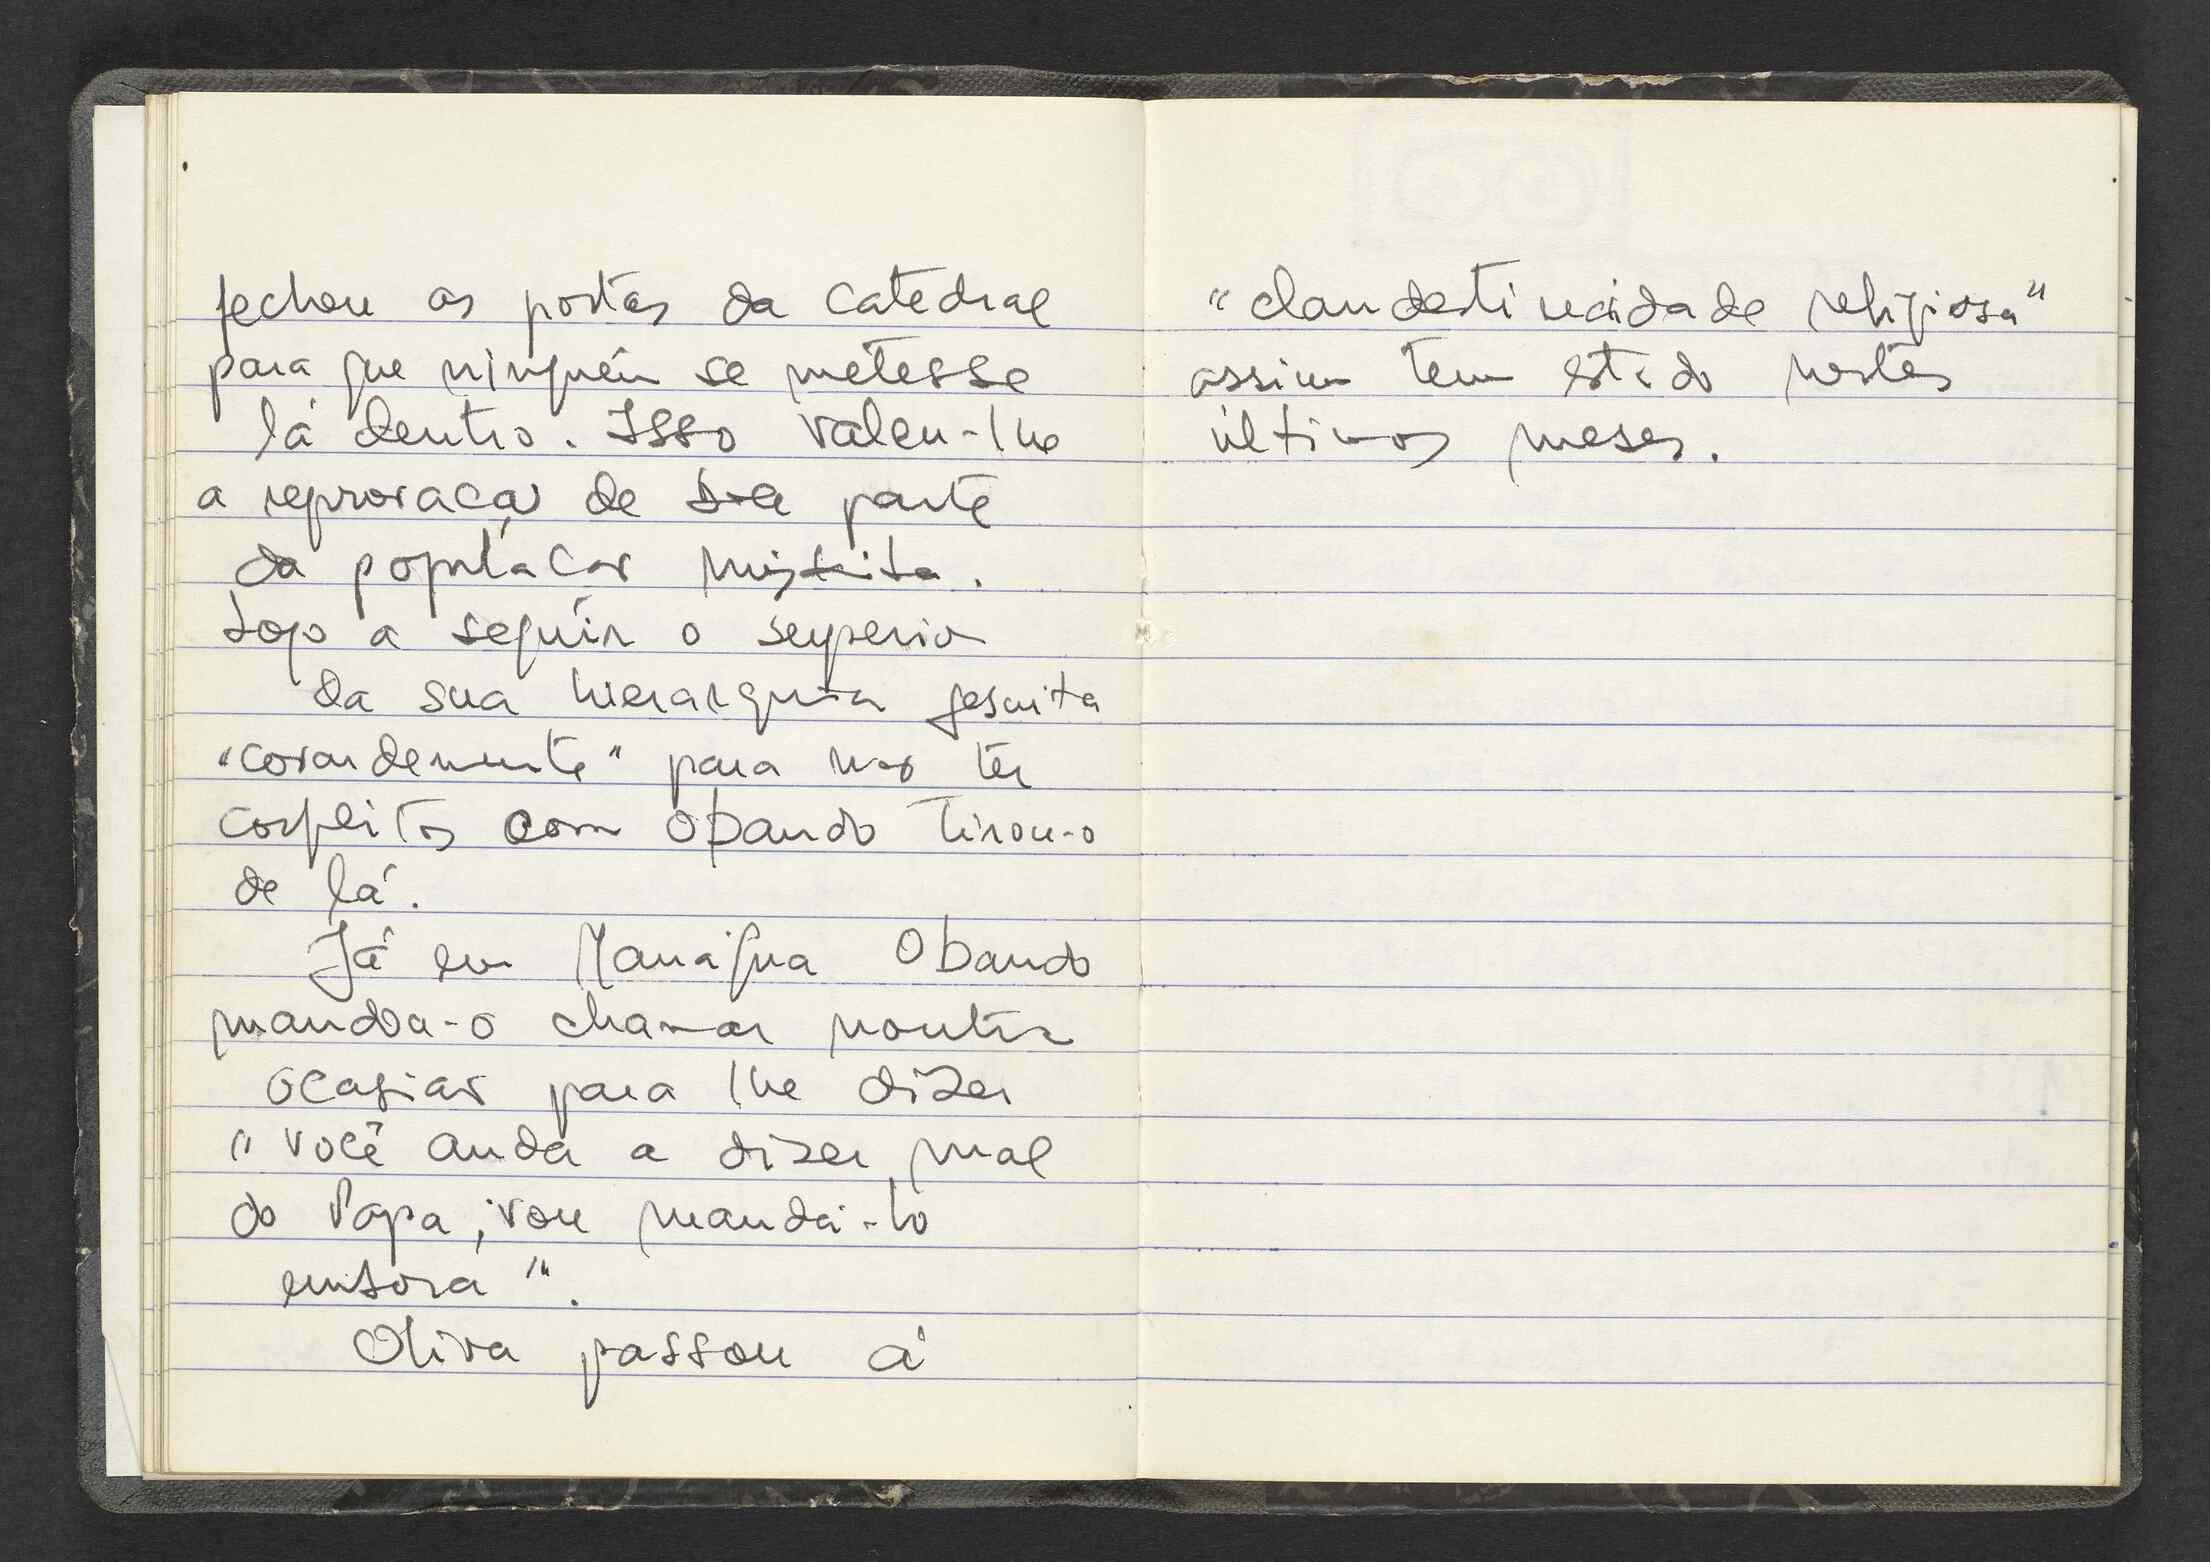 fechou as portas da catedral
para que ninguém se metesse
lá dentro. Isso valeu-lhe
a reprovação de boa parte
da população miskita.
Logo a seguir o superior
da sua hierarquia jesuita
"covardemente" para não ter
conflitos com Obando tirou-o
de lá.
Já em Manágua Obando
manda-o chamar noutra
ocasião para lhe dizer
"você anda a dizer mal
do Papa, vou mandá-lo
embora".
Oliva passou à
"clandestinidade religiosa"
assim tem estado nestes
últimos meses.